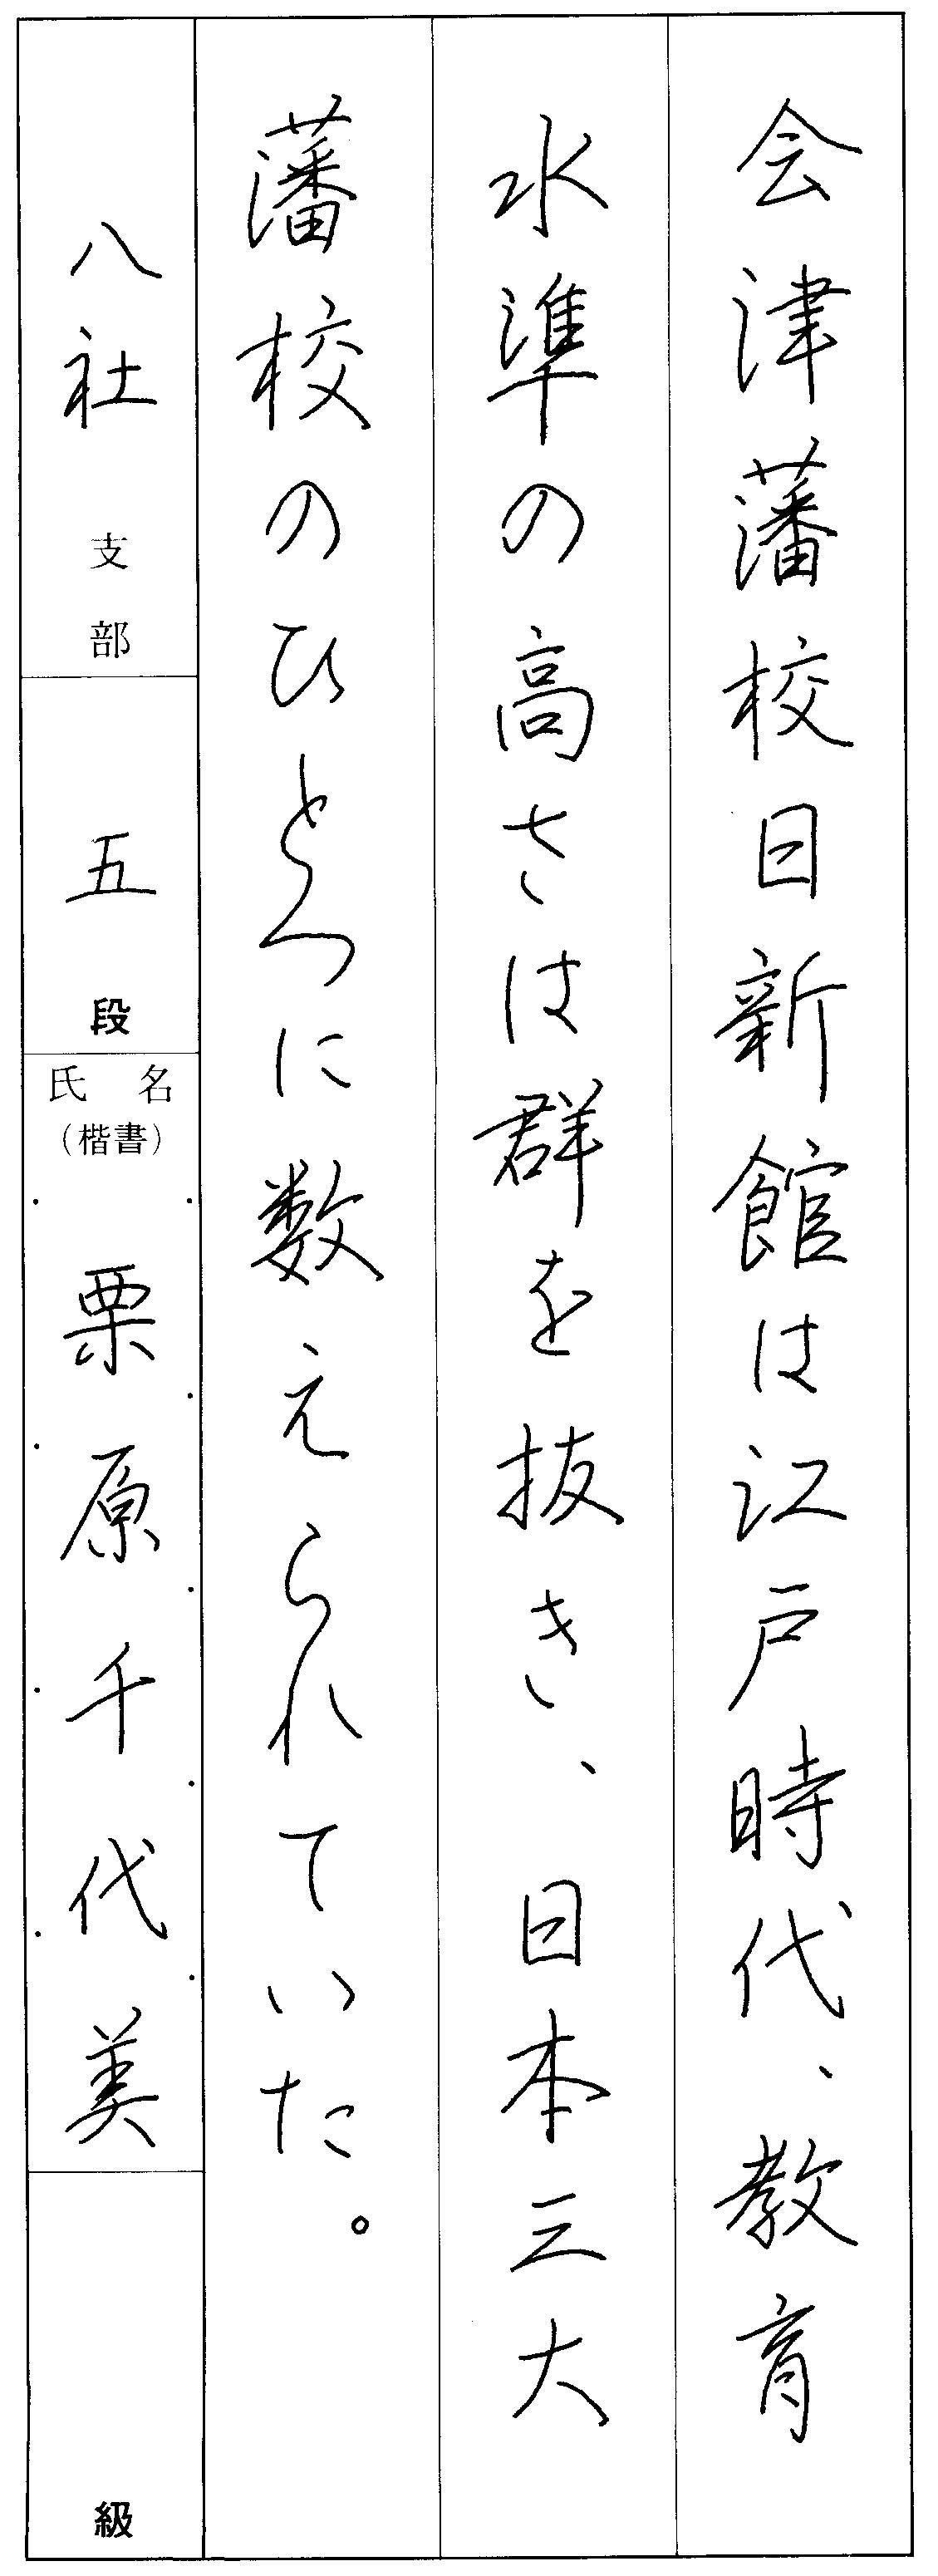 会津藩校日新館は江戸時代、教育
水準の高さは群を抜き、日本三大
藩校のひとつに数えられていた。
八社支部
五段
氏名
（楷書）
栗原千代美
級